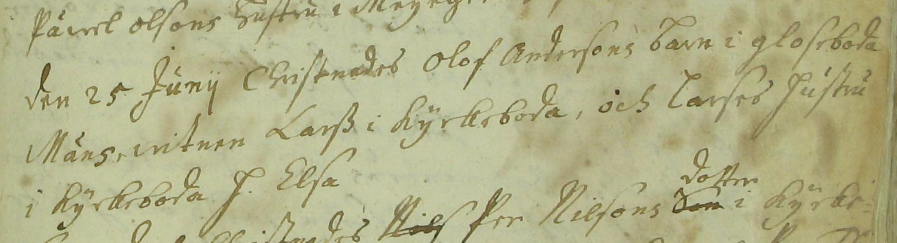 Påwel Olsons Hustru i
den 25 Junij Christnades Olof Andersons barn i gloseboda
Måns, witnen Larß i Kyrkeboda, och Larses Hustru
i Kyrkeboda H. Elsa
dotter
Christnades Nils Per Nilsons Son i Kyrke-